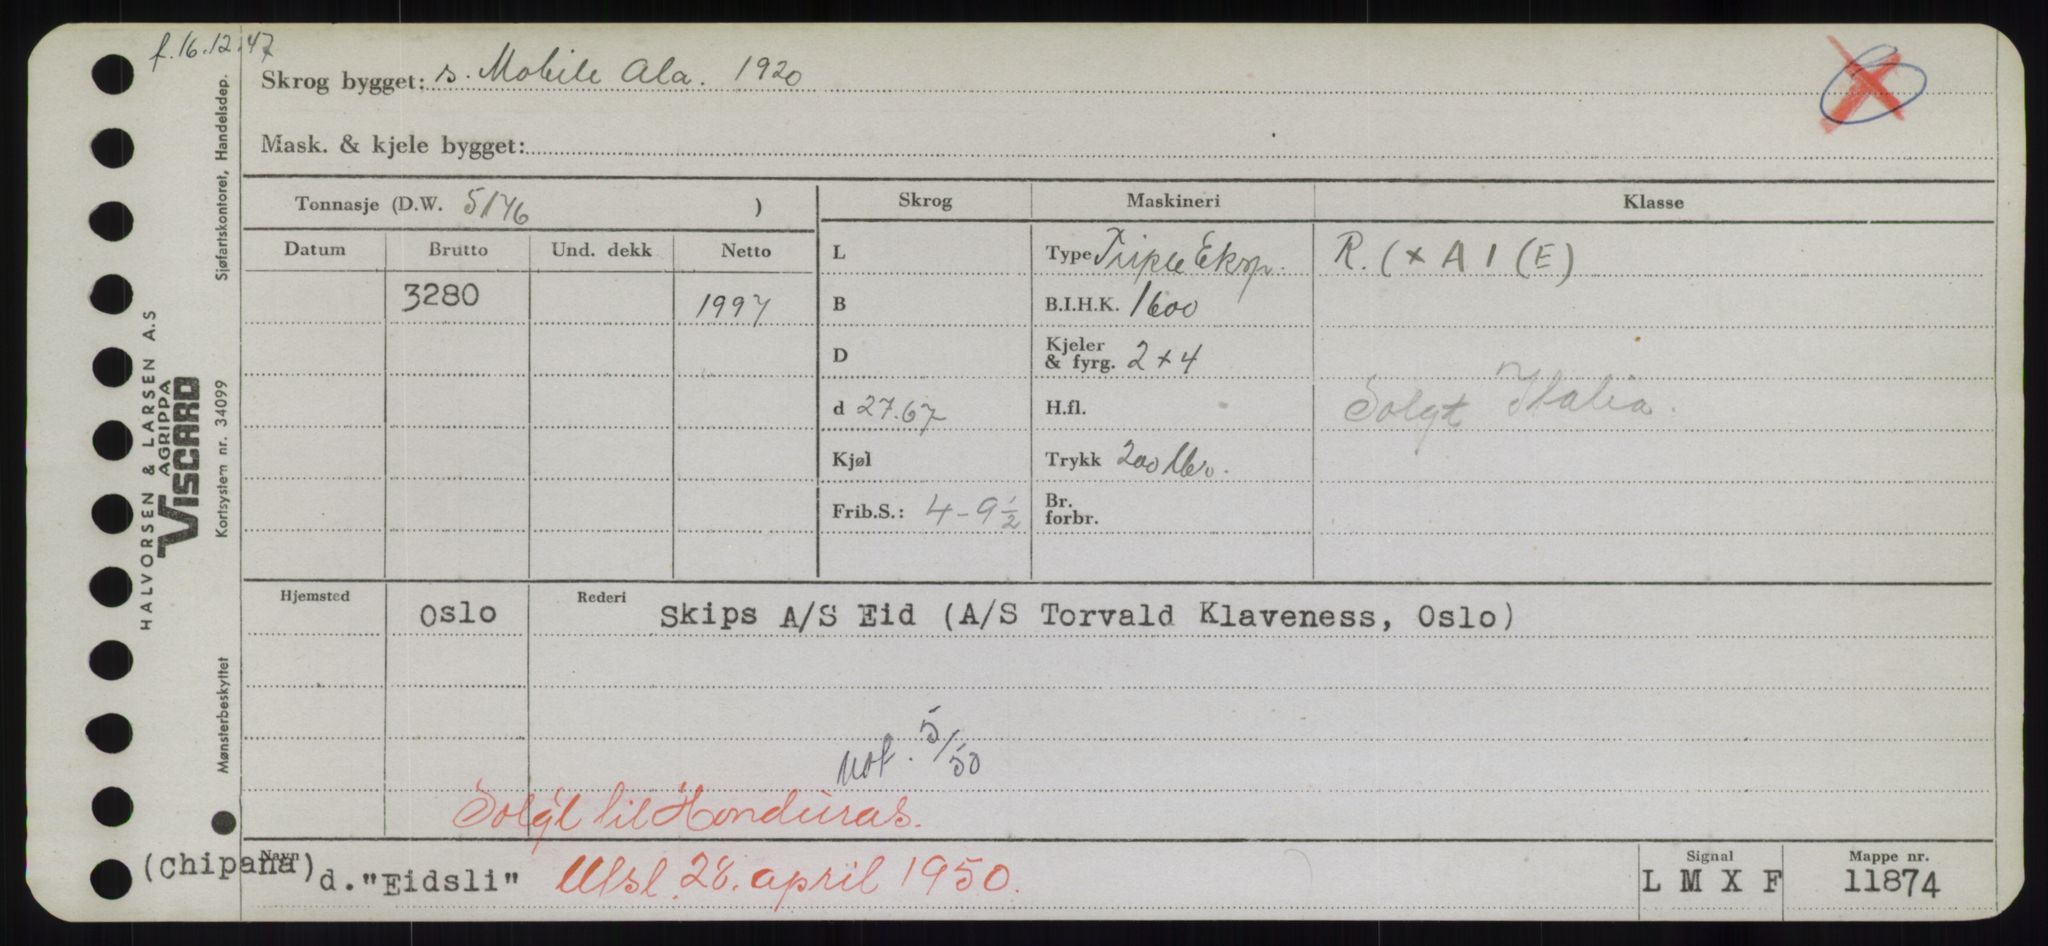 f. 16.12.47
Skrog bygget: s. Mobile Ala. 1920
Mask. & kjele bygget:
Tonnasje (D.W. 5176 )
Skrog
Maskineri
Klasse
Datum
Brutto
Und. dekk
Netto
3280
1997
L
B
D
d 27.67
Kjøl
Frib.S.: 4-9½
Type Triple Eksp.
B.I.H.K. 1600
Kjeler
& fyrg. 2+4
H.fl.
Trykk 200 lbs.
Br.
forbr.
R. (x A 1 (E)
Solgt Italia.
Hjemsted
Oslo
Rederi
Skips A/S Eid (A/S Torvald Klaveness, Oslo)
not. 5/50
Solgt til Honduras.
Navn
(Chipana) d."Eidsli"
Utsl. 28. april 1950.
Signal
L M X F
Mappe nr.
11874
HALVORSEN & LARSEN A.S
AGRIPPA
VISCARD
Sjøfartskontoret, Handelsdep.
Kortsystem nr. 34099
Mønsterbeskyttet